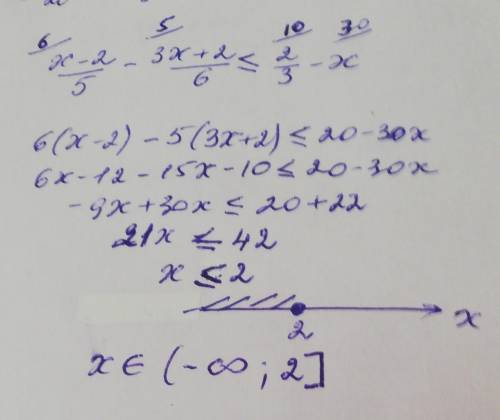 6/ (x-2)/5 - 5/ (3x+2)/6 ≤ 10/ 2/3 - 30/ x
6(x-2) - 5(3x+2) ≤ 20-30x
6x-12-15x-10 ≤ 20-30x
-9x+30x ≤ 20+22
21x ≤ 42
x ≤ 2
2 x
x ∈ (-∞; 2]